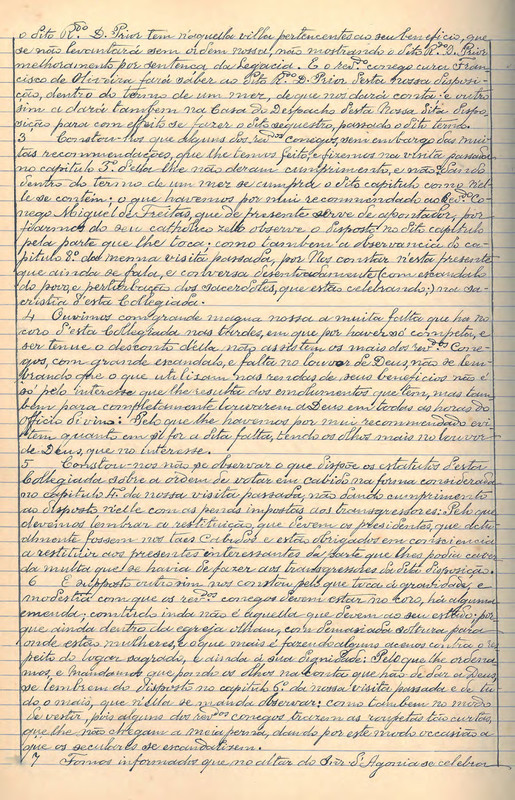 o dito R.do D. Prior tem n'aquella villa pertencentes ao seu beneficio, que
se não levantará sem ordem nossa, não mostrando o dito R.do D. Prior
melhoramento por sentença da Legacia. E o rev.do conego cura Fran-
cisco de Oliveira fará saber ao dito R.do D. Prior d'esta nossa disposi-
ção, dentro do termo de um mez, de que nos dará conta: e outro
sim a dará tambem na Casa do Despacho d'esta Nossa dita dispo-
sição para com effeito se fazer o dito sequestro, passado o dito termo.
3 Constou-Nos que alguns dos rev.dos conegos, sem embargo das mui-
tas recommendações, que lhe temos feito, e fizemos na visita passada
no capitulo 5.º d'ella lhe não deram cumprimento, e não saindo
dentro do termo de um mez se cumpra o dito capitulo como nel-
le se contém; o que havemos por mui recommendado ao Rev.do Co-
nego Miguel de Freitas, que de presente serve de apontador, por
fiarmos do seu catholico zello observe o disposto no dito capitulo
pela parte que lhe toca: como tambem a observancia do ca-
pitulo 8.º da mesma visita passada, por Nos constar n'esta presente
que ainda se fala, e conversa desentoadamente (com escandalo
do povo, e perturbação dos sacerdotes, que estão celebrando;) na sa-
cristia d'esta Collegiada.
4 Ouvimos com grande magua nossa a muita falta que ha no
coro d'esta Collegiada nas tardes, em que por haver só competa, e
ser tenue o desconto d'ella não assistem os mais dos rev.dos Cone-
gos, com grande escandalo, e falta no louvor de Deus, não se lem-
brando que o que utilizam nas rendas de seus beneficios não é
só pelo interesse que lhe resulta dos emolumentos que tem, mas tam-
bem para completamente louvarem a Deus em todas as horas do
officio divino: Pelo que lhe havemos por mui recommendado evi-
tem quanto em si for a dita falta, tendo os olhos mais no louvor
de Deus, que no interesse.
5 Constou-nos não se observar o que dispõe os estatutos d'esta
Collegiada sobre a ordem de votar em cabido na forma considerada
no capitulo 4.º da nossa visita passada, não dando cumprimento
ao disposto nelle com as penas impostas aos transgressores: Pelo que
devemos lembrar a restituição, que devem os presidentes, que actu-
almente fossem nos taes Cabidos e estão obrigados em consciencia
a restituir aos presentes interessantes da parte que lhes podia caber
da multa que se havia de fazer aos transgressores da dita disposição.
6 E supposto outro sim nos constou pelo que toca á gravidade, e
modestia com que os rev.dos conegos devem estar no coro, ha alguma
emenda, comtudo inda não é aquella que devem ao seu estado: por
que ainda dentro da egreja olham, com demasiada soltura para
onde estão mulheres, e o que mais é fazendo alguns acenos contra o res-
peito do logar sagrado, e ainda á sua dignidade: Pelo que lhe ordena-
mos, e mandamos que pondo os olhos na conta que hão de dar a Deus,
se lembrem do disposto no capitulo 6.º da nossa visita passada e de tu-
do o mais, que n'ella se manda observar: como tambem no modo
de vestir, pois alguns dos rev.dos conegos trazem as roupetas tão curtas,
que lhe não chegam a meia perna, dando por este modo occasião a
que os seculares se escandalizem.
7 Fomos informados que no altar do Snr. d'Agonia se celebram